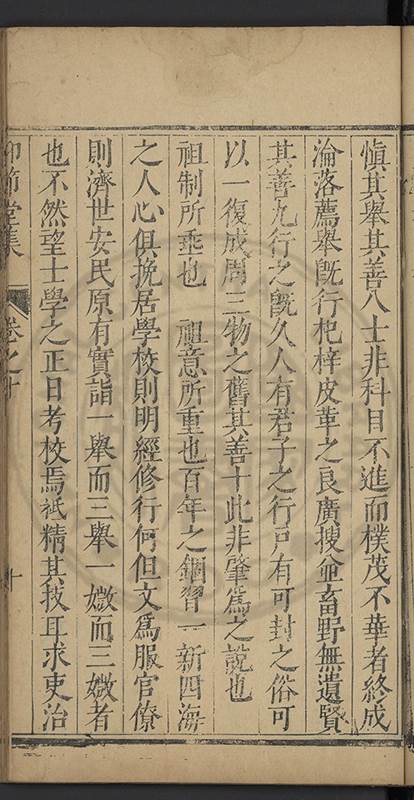 慎其舉其善八士非科目不進而樸茂不華者終成
淪落薦舉旣行杞梓皮革之良廣搜並畜野無遺賢
其善九行之旣久人有君子之行戸有可封之俗可
以一復成周三物之舊其善十此非肇爲之說也
祖制所垂也　祖意所重也百年之錮習一新四海
之人心俱挽居學校則明經修行何但文爲服官僚
則濟世安民原有實詣一舉而三舉一媺而三媺者
也不然望士學之正日考校焉祇精其技耳求吏治
仰節堂集
卷之十
十